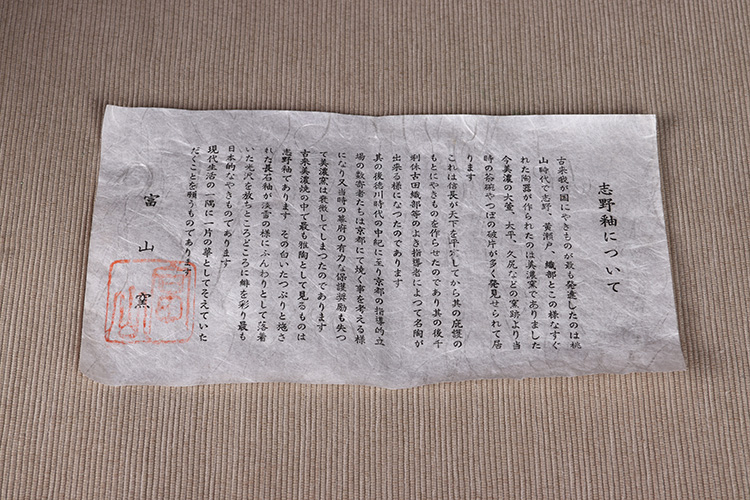 志野釉について
古来我が国にやきものが最も発達したのは桃
山時代で志野、黄瀬戸、織部とこの様なすぐ
れた陶器が作られたのは美濃窯でありました
今美濃の大萱、太平、久尻などの窯跡より当
時の茶碗やつぼの破片が多く発見せられて居
ります
これは信長が天下を平定してから其の庇護の
もとにやきものを作らせたのであり其の後千
利休古田織部等のよき指導者によって名陶が
出来る様になつたのであります
其の後徳川時代の中紀に至り京都の指導的立
場の数寄者たちは京都にて焼く事を考える様
になり又当時の幕府の有力な保護奨励も失つ
て美濃窯は衰微してしまつたのであります
古来美濃焼の中で最も雅陶として見るものは
志野釉であります その白いたつぷりと施さ
れた長石釉が淡雪の様にふんわりとして落着
いた光沢を放ちところどころに緋を彩り最も
日本的なやきものであります
現代生活の一隅に一片の夢としてそえていた
だくことを願うものであります
富山窯